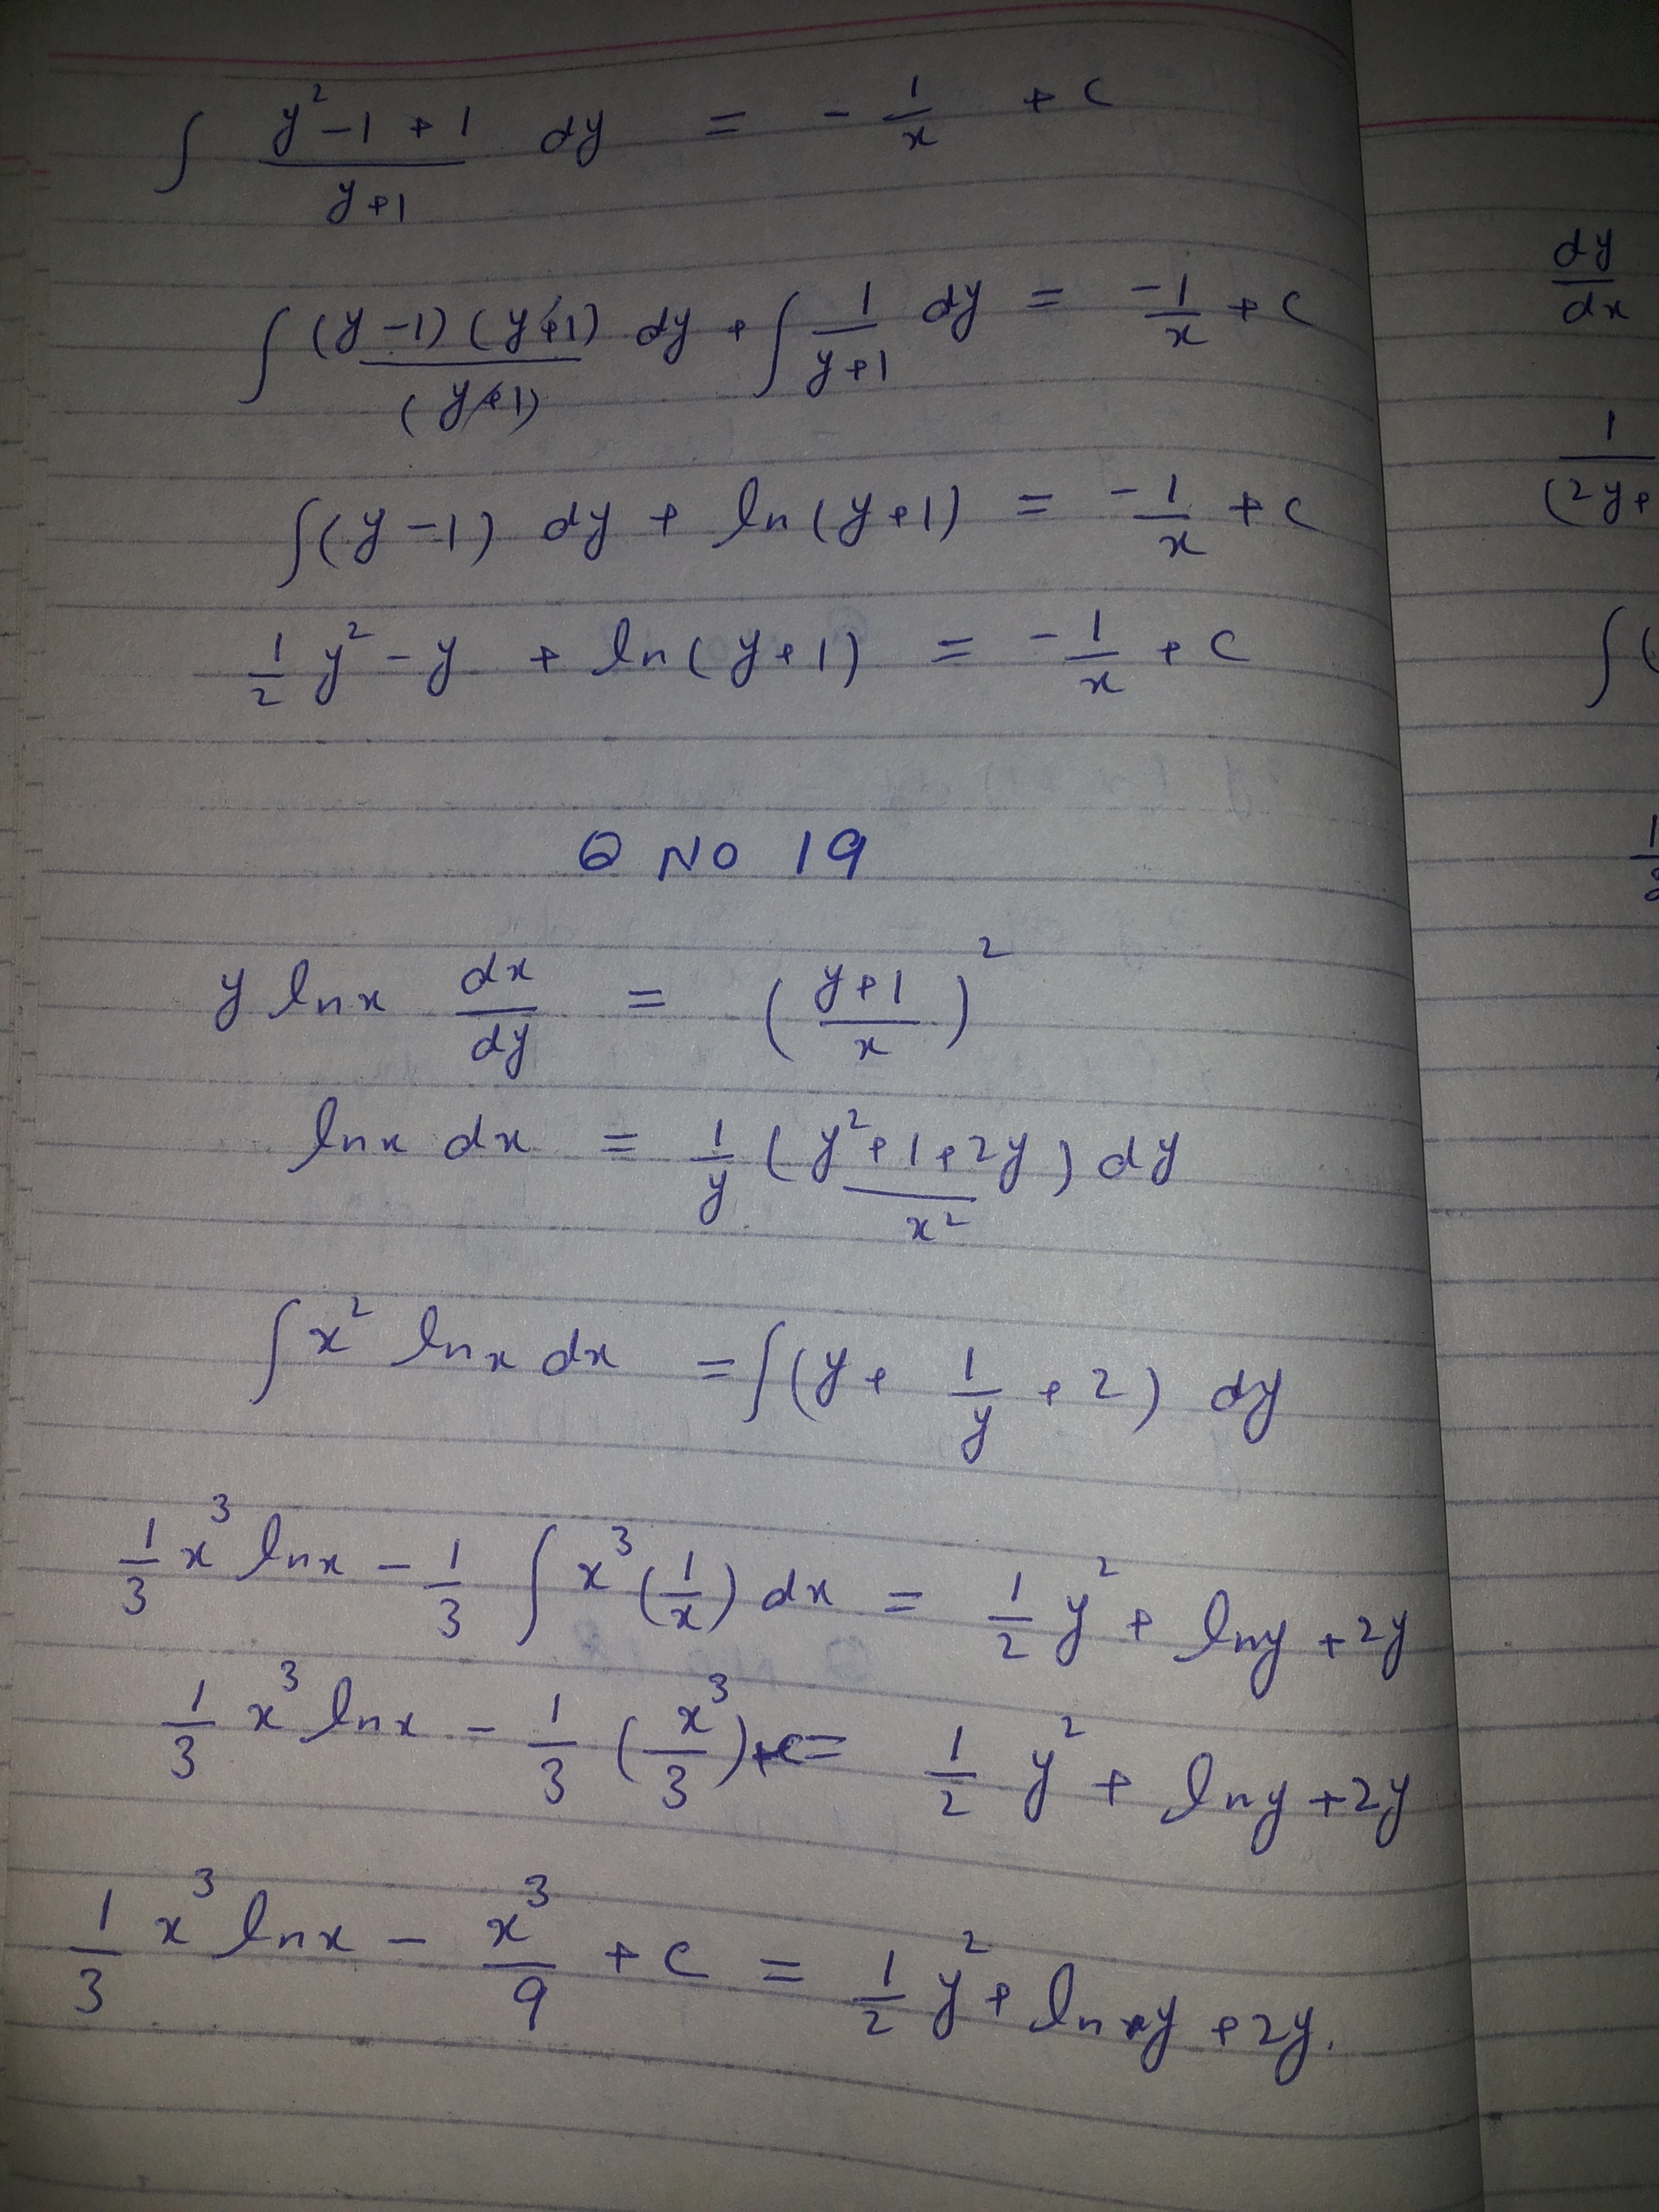 ∫ (y²-1+1)/(y+1) dy = -1/x + c
∫ (y-1)(y+1)/(y+1) dy + ∫ 1/(y+1) dy = -1/x + c
∫(y-1) dy + ln(y+1) = -1/x + c
1/2 y² - y + ln(y+1) = -1/x + c
Q NO 19
y lnx dx/dy = ((y+1)/x)²
lnx dx = 1/y ((y²+1+2y)/x²) dy
∫x² lnx dx = ∫(y + 1/y + 2) dy
1/3 x³ lnx - 1/3 ∫ x³(1/x) dx = 1/2 y² + lny + 2y
1/3 x³ lnx - 1/3 (x³/3) + c = 1/2 y² + lny + 2y
1/3 x³ lnx - x³/9 + c = 1/2 y² + ln y + 2y.
dy/dx
1/(2y+
∫(